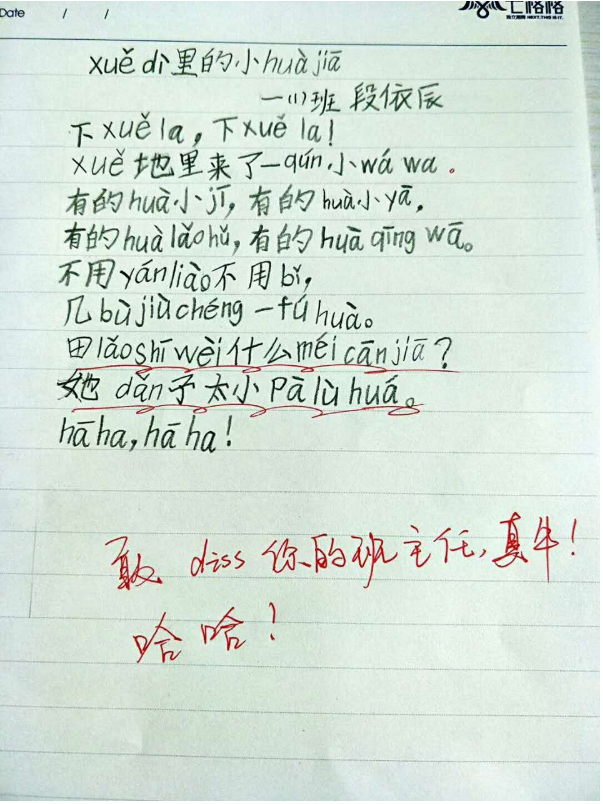 Date / /
七格格
独立潮牌 NEXT.THIS IS IT.
xuě dì里的小huà jiā
一(1)班 段依辰
下xuě la，下xuě la！
xuě地里来了一qún小wá wa。
有的huà小jī，有的huà小yā，
有的huà lǎo hǔ，有的huà qīng wā。
不用yán liào不用bǐ，
几bù jiù chéng一fú huà。
田lǎo shī wèi什么méi cān jiā？
她dǎn子太小Pà lù huá。
hā ha，hā ha！
敢diss你的班主任，真牛！
哈哈！